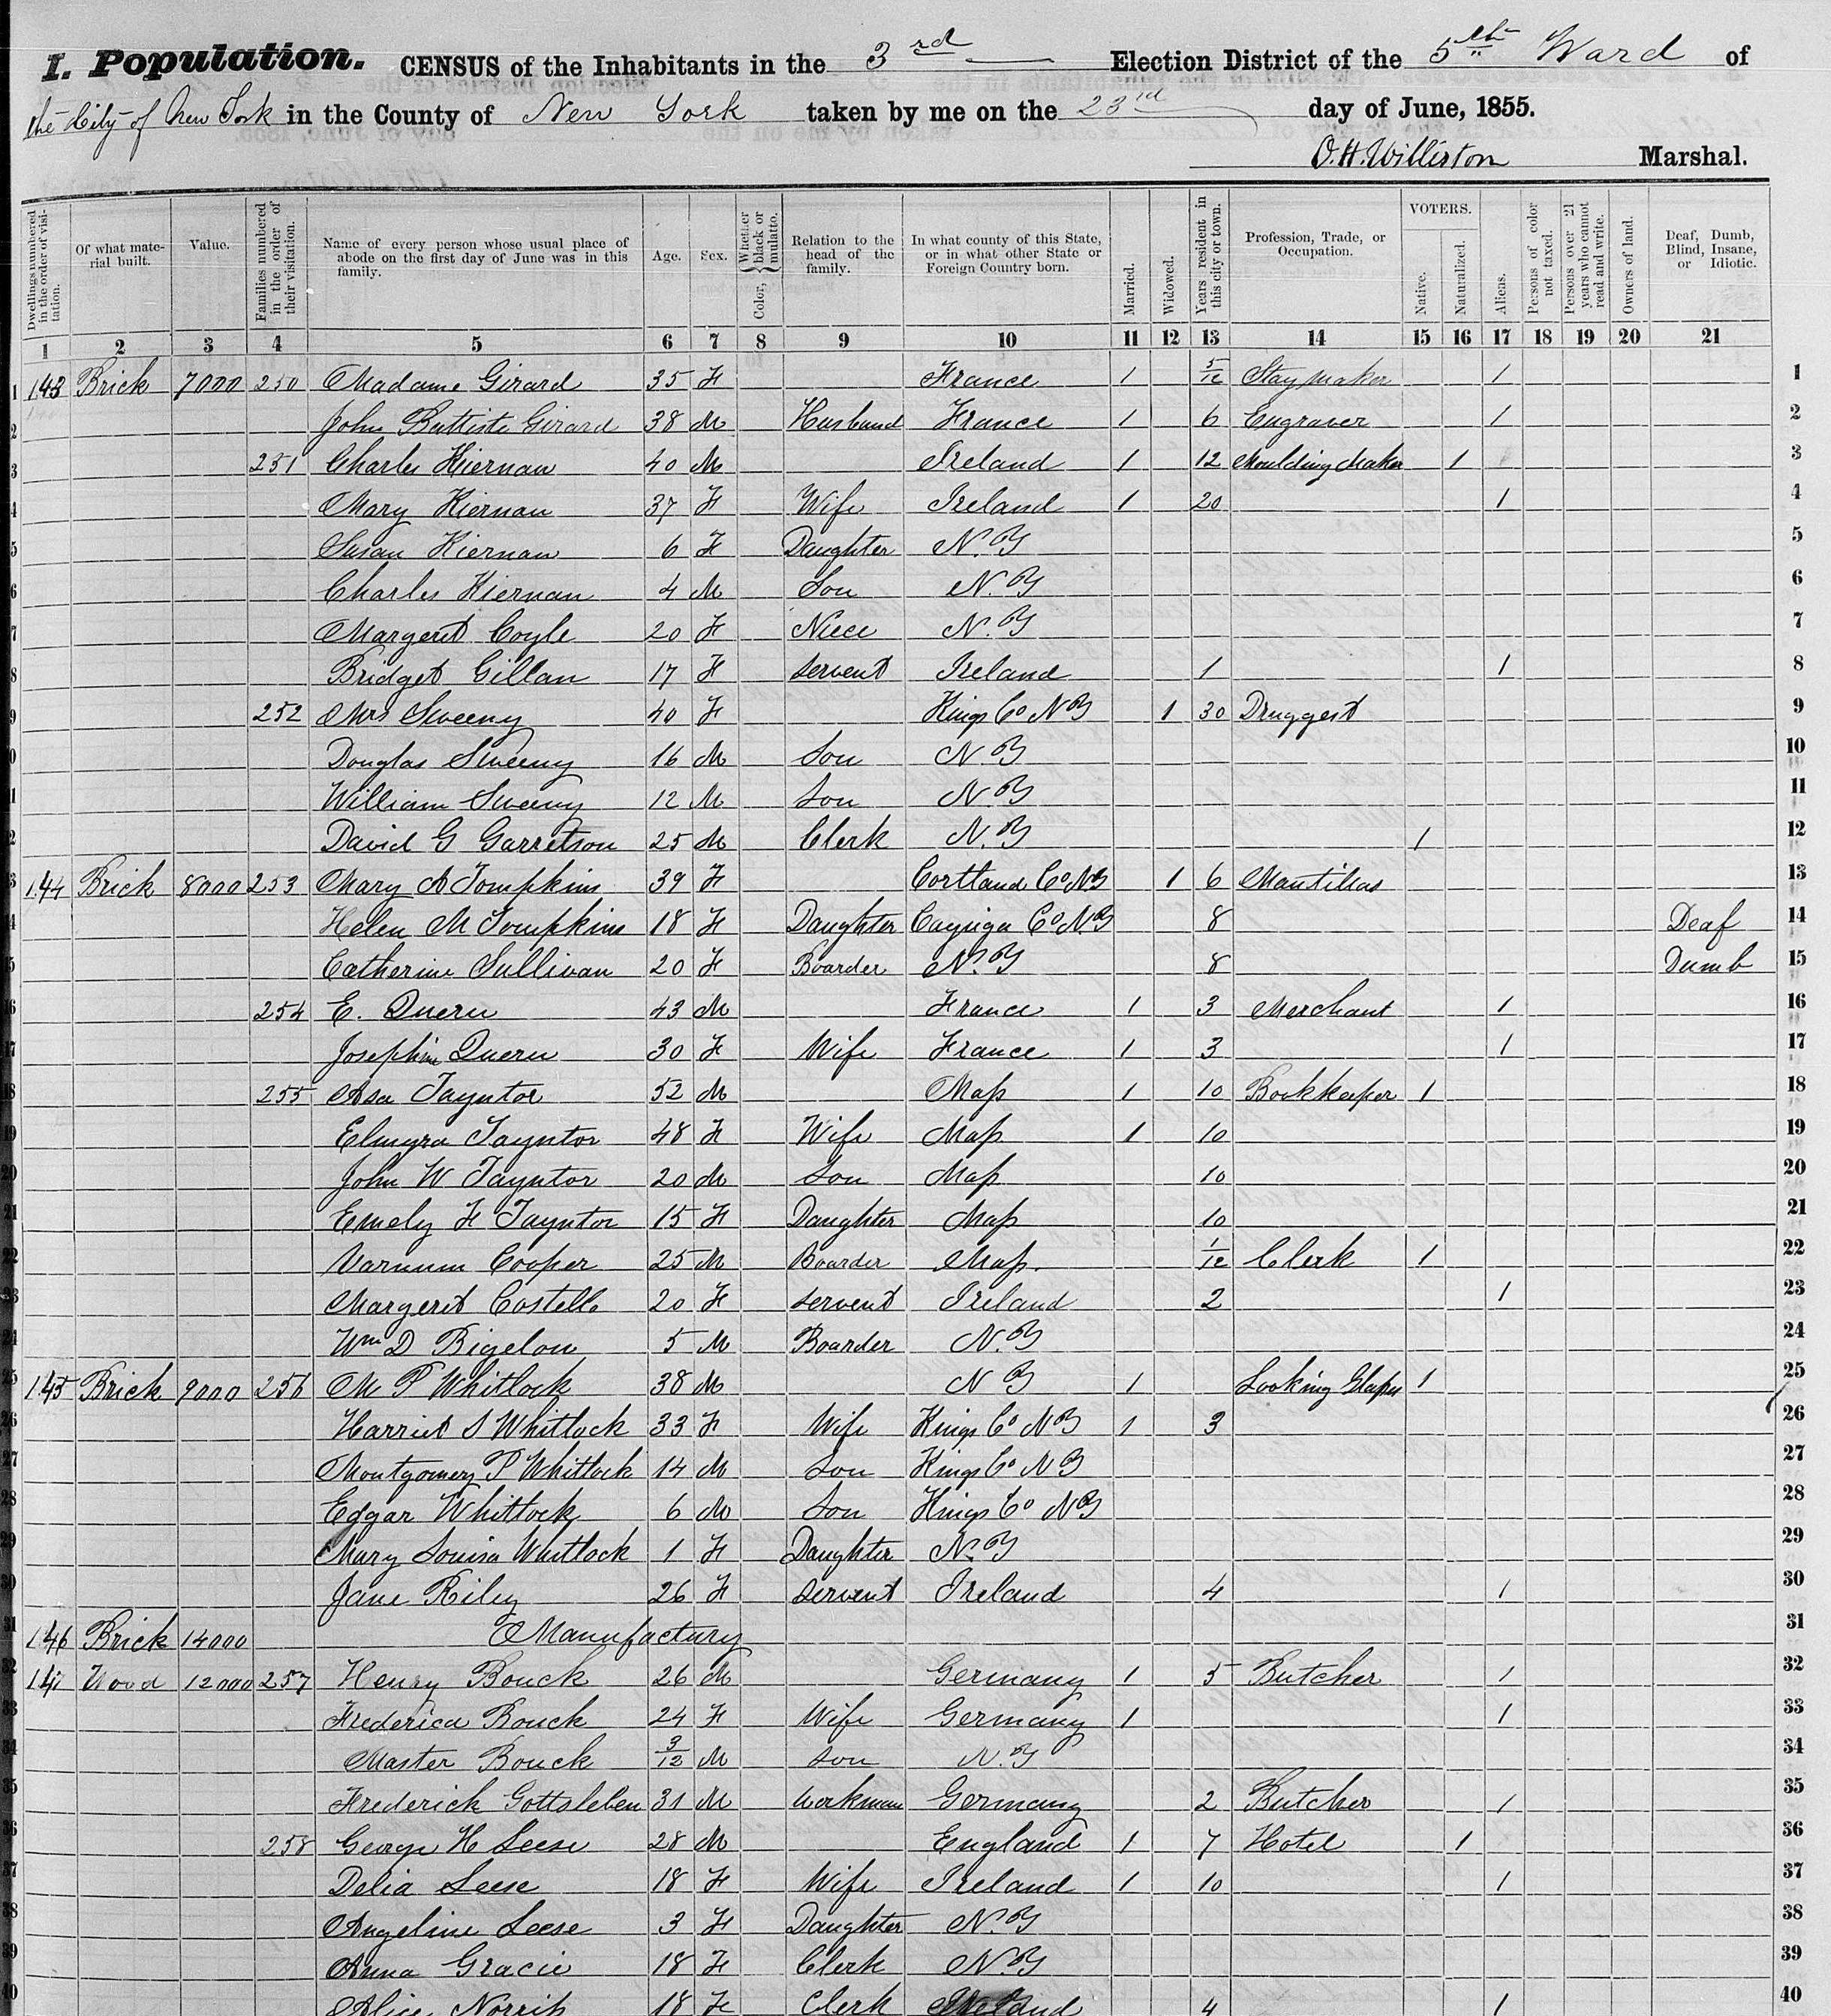 I. Population. CENSUS of the Inhabitants in the 3rd Election District of the 5th Ward of
the City of New York in the County of New York taken by me on the 23rd day of June, 1855.
O. H. Williston Marshal.
Dwellings numbered in the order of visitation.
Of what material built.
Value.
Families numbered in the order of their visitation.
Name of every person whose usual place of abode on the first day of June was in this family.
Age.
Sex.
Color, Whether black or mulatto.
Relation to the head of the family.
In what county of this State, or in what other State or Foreign Country born.
Married.
Widowed.
Years resident in this city or town.
Profession, Trade, or Occupation.
VOTERS.
Native.
Naturalized.
Aliens.
Persons of color not taxed.
Persons over 21 years who cannot read and write.
Owners of land.
Deaf, Dumb, Blind, Insane, or Idiotic.
1 2 3 4 5 6 7 8 9 10 11 12 13 14 15 16 17 18 19 20 21
1 143 Brick 7000 250 Madame Girard 35 F France 1 5/12 Stay maker 1 1
2 John Battiste Girard 38 M Husband France 1 6 Engraver 1 2
3 251 Charles Kiernan 40 M Ireland 1 12 Moulding Maker 1 3
4 Mary Kiernan 37 F Wife Ireland 1 20 1 4
5 Susan Kiernan 6 F Daughter N.Y 5
6 Charles Kiernan 4 M Son N.Y 6
7 Margeret Coyle 20 F Niece N.Y 7
8 Bridget Gillan 17 F servent Ireland 1 1 8
9 252 Mrs Sweeny 40 F Kings Co N Y 1 30 Druggest 9
0 Douglas Sweeny 16 M Son N Y 10
1 William Sweeny 12 M Son N.Y 11
2 David G Garretson 25 M Clerk N.Y 1 12
3 144 Brick 8000 253 Mary A Tompkins 39 F Cortland Co N Y 1 6 Mantillas 13
4 Helen M Tompkins 18 F Daughter Cayuga Co N.Y 8 Deaf 14
5 Catherine Sullivan 20 F Boarder N.Y 8 Dumb 15
16 254 E. Queru 43 M France 1 3 Merchant 1 16
17 Josephine Queru 30 F Wife France 1 3 1 17
18 255 Asa Tayntor 52 M Mass 1 10 Bookkeeper 1 18
19 Elmyra Tayntor 48 F Wife Mass 1 10 19
20 John W Tayntor 20 M Son Mass 10 20
21 Emely F Tayntor 15 F Daughter Mass 10 21
22 Varnum Cooper 25 M Boarder Mass. 1/12 Clerk 1 22
23 Margeret Costello 20 F servent Ireland 2 1 23
24 Wm D Bigelow 5 M Boarder N.Y 24
25 145 Brick 9000 256 M P Whitlock 38 M N Y 1 Looking Glasses 1 25
26 Harriet S Whitlock 33 F Wife Kings Co N Y 1 3 26
27 Montgomery P Whitlock 14 M Son Kings Co N Y 27
28 Edgar Whitlock 6 M Son Kings Co N Y 28
29 Mary Louisa Whitlock 1 F Daughter N.Y 29
30 Jane Riley 26 F servent Ireland 4 1 30
31 146 Brick 14000 Manufactury 31
32 147 Wood 12000 257 Henry Bouck 26 M Germany 1 5 Butcher 1 32
33 Frederica Bouck 24 F Wife Germany 1 1 33
34 Master Bouck 3/12 M son N.Y 34
35 Frederick Gottsleben 31 M Workman Germany 2 Butcher 1 35
36 258 George H Leese 28 M England 1 7 Hotel 1 36
37 Delia Leese 18 F Wife Ireland 1 10 1 37
38 Angeline Leese 3 F Daughter N.Y 38
39 Anna Gracie 18 F Clerk N.Y 39
40 Alice Norris 18 F Clerk Ireland 4 1 40